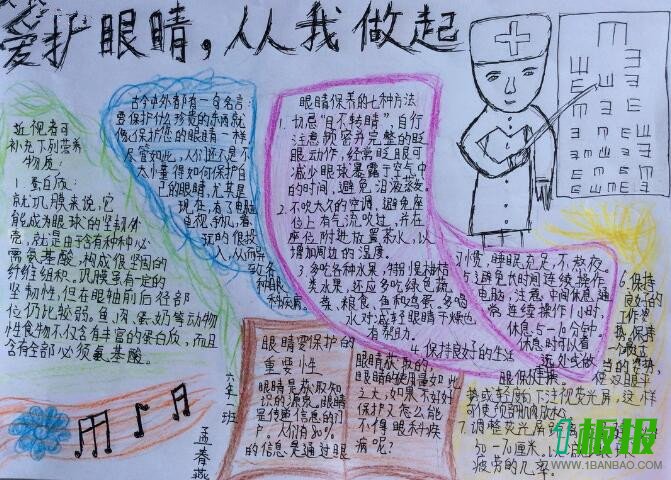 爱护眼睛,从我做起
近视者可
补充下列营养
物质。
1. 蛋白质:
就巩膜来说,它
能成为眼球的坚韧体
壳,就是由于含有种种必
需氨基酸,构成很坚固的
纤维组织。巩膜虽有一定的
坚韧性,但在眼轴前后径部
位仍比较弱。鱼、肉、蛋、奶等动物
性食物不仅含有丰富的蛋白质,而且
含有全部必须氨基酸。
古今中外都有一句名言:
要保护什么珍贵的东西就
像保护您的眼睛一样
尽管如此,人们还是不
太懂得如何保护自
己的眼睛,尤其是
现在,有了电脑
电视,手机,看、
玩的很投
入,从而导
致各
种眼
科疾病。
眼睛保养的七种方法
1. 切忌"目不转睛",自行
注意频密并完整的眨
眼动作,经常眨眼可
减少眼球暴露于空气中
的时间,避免泪液蒸发。
2. 不吹太久的空调,避免座
位上有气流吹过,并在
座位附近放置茶水,以
增加周边的湿度。
3. 多吃各种水果,特别是柑桔
类水果,还应多吃绿色蔬
菜、粮食、鱼和鸡蛋。多喝
水对减轻眼睛干燥也
有帮助。
4. 保持良好的生活
习惯,睡眠充足,不熬夜。
5. 避免长时间连续操作
电脑,注意中间休息,通
常连续操作1小时,
休息5-10分钟。
休息时可以看
远处或做
眼保健操。
6. 保持
良好的
工作姿
势。保持
一个最适
当的姿势,
使双眼平
势或轻度向下注视荧光屏,这样
可使颈部肌肉放松
7. 调整荧光屏
50-70厘米
疲劳的几率。
眼睛要保护的
重要性
眼睛是获取知
识的源泉。眼睛
是传递信息的门
户。人们有80%
的信息是通过眼
眼睛获取的,
眼睛的使用量如此
之大,如果不好好
保护又怎么能
不得眼科疾
病呢?
六年一班
孟春燕
板报
WWW.1BANBAO.COM